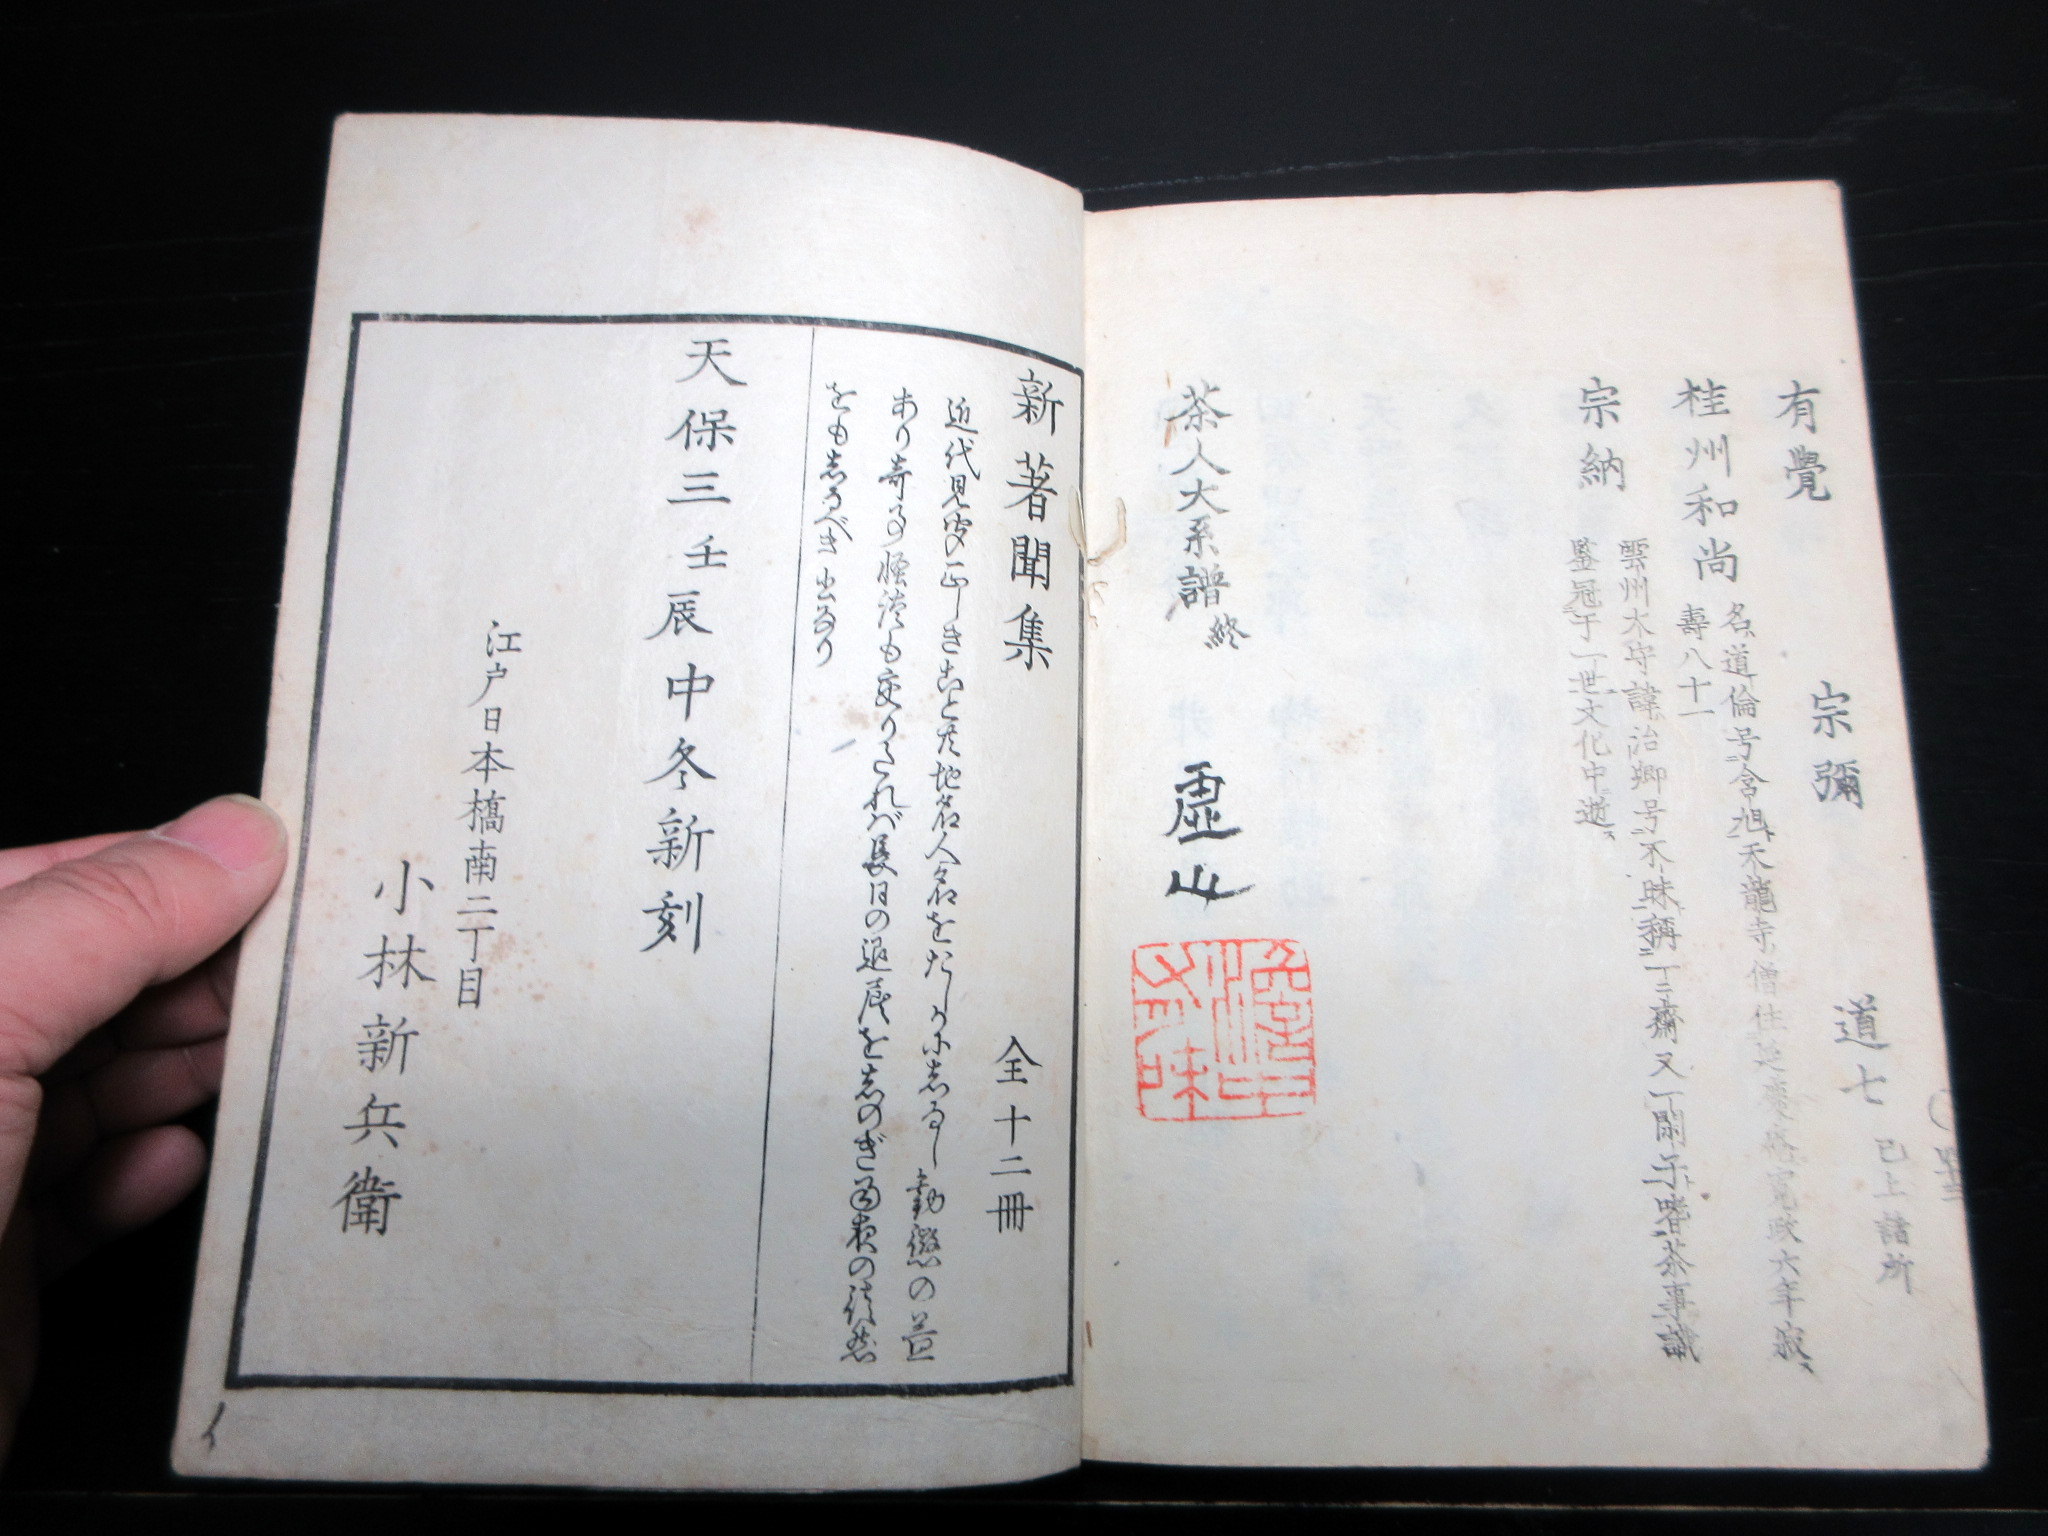 有覺 宗彌 道七 已上諸所
桂州和尚 名道倫号含旭天龍寺僧住延慶菴寛政六年寂
壽八十一
宗納 雲州太守諱治郷号不昧稱一二齋又一閑子嗜茶事識
鑒冠于一世文化中逝
茶人大系譜終 虚山
新著聞集 全十二冊
近代見聞の正しきこと共地名人名をたしかにしるし勸懲の益
あり奇事怪談も交りたれば長日の退屈をしのぎ遊興の話柄
ともなるべき書なり
天保三壬辰中冬新刻
江戸日本橋南二丁目
小林新兵衛